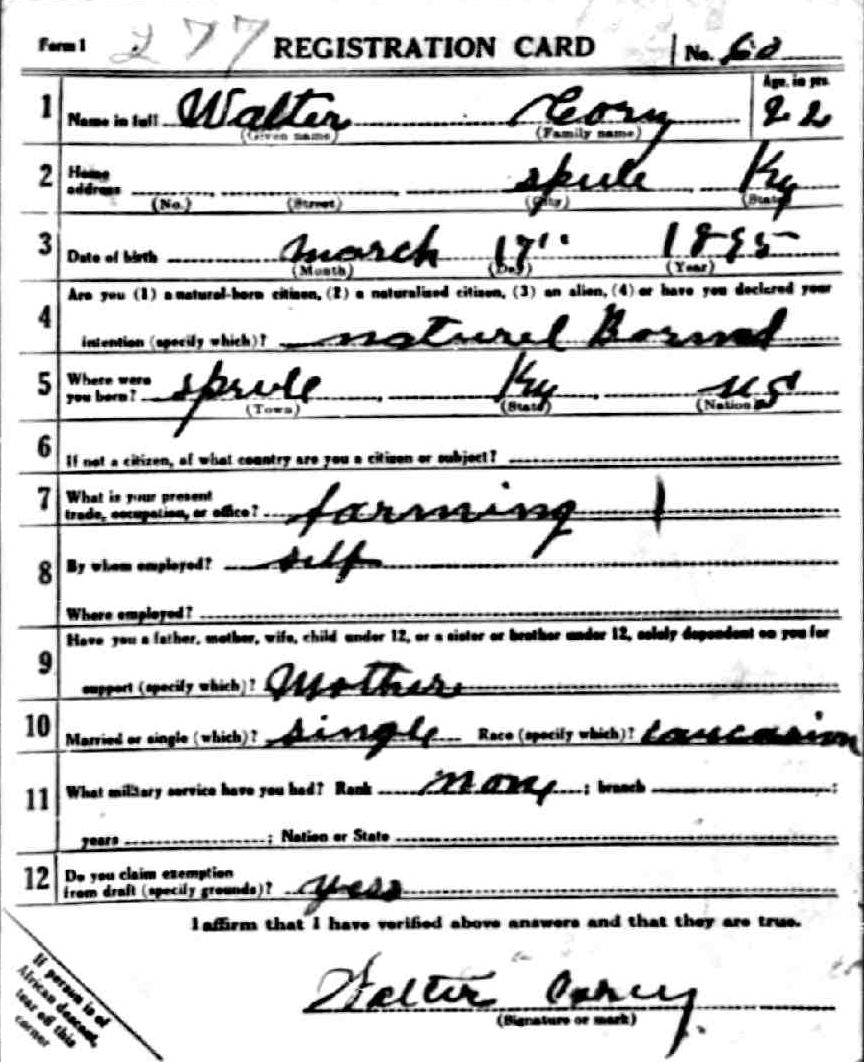 Form 1 277 REGISTRATION CARD No. 60
1 Name in full Walter Cory Age, in yrs. 22
(Given name) (Family name)
2 Home address Sprule Ky
(No.) (Street) (City) (State)
3 Date of birth March 17" 1895
(Month) (Day) (Year)
4 Are you (1) a natural-born citizen, (2) a naturalized citizen, (3) an alien, (4) or have you declared your
intention (specify which)? naturel Bornd
5 Where were you born? Sprule Ky US
(Town) (State) (Nation)
6 If not a citizen, of what country are you a citizen or subject?
7 What is your present trade, occupation, or office? farming
8 By whom employed? self
Where employed?
9 Have you a father, mother, wife, child under 12, or a sister or brother under 12, solely dependent on you for
support (specify which)? Mother
10 Married or single (which)? single Race (specify which)? Caucasion
11 What military service have you had? Rank none ; branch ;
years ; Nation or State
12 Do you claim exemption from draft (specify grounds)? yess
I affirm that I have verified above answers and that they are true.
Walter Corey
(Signature or mark)
If person is of
African descent,
tear off this
corner